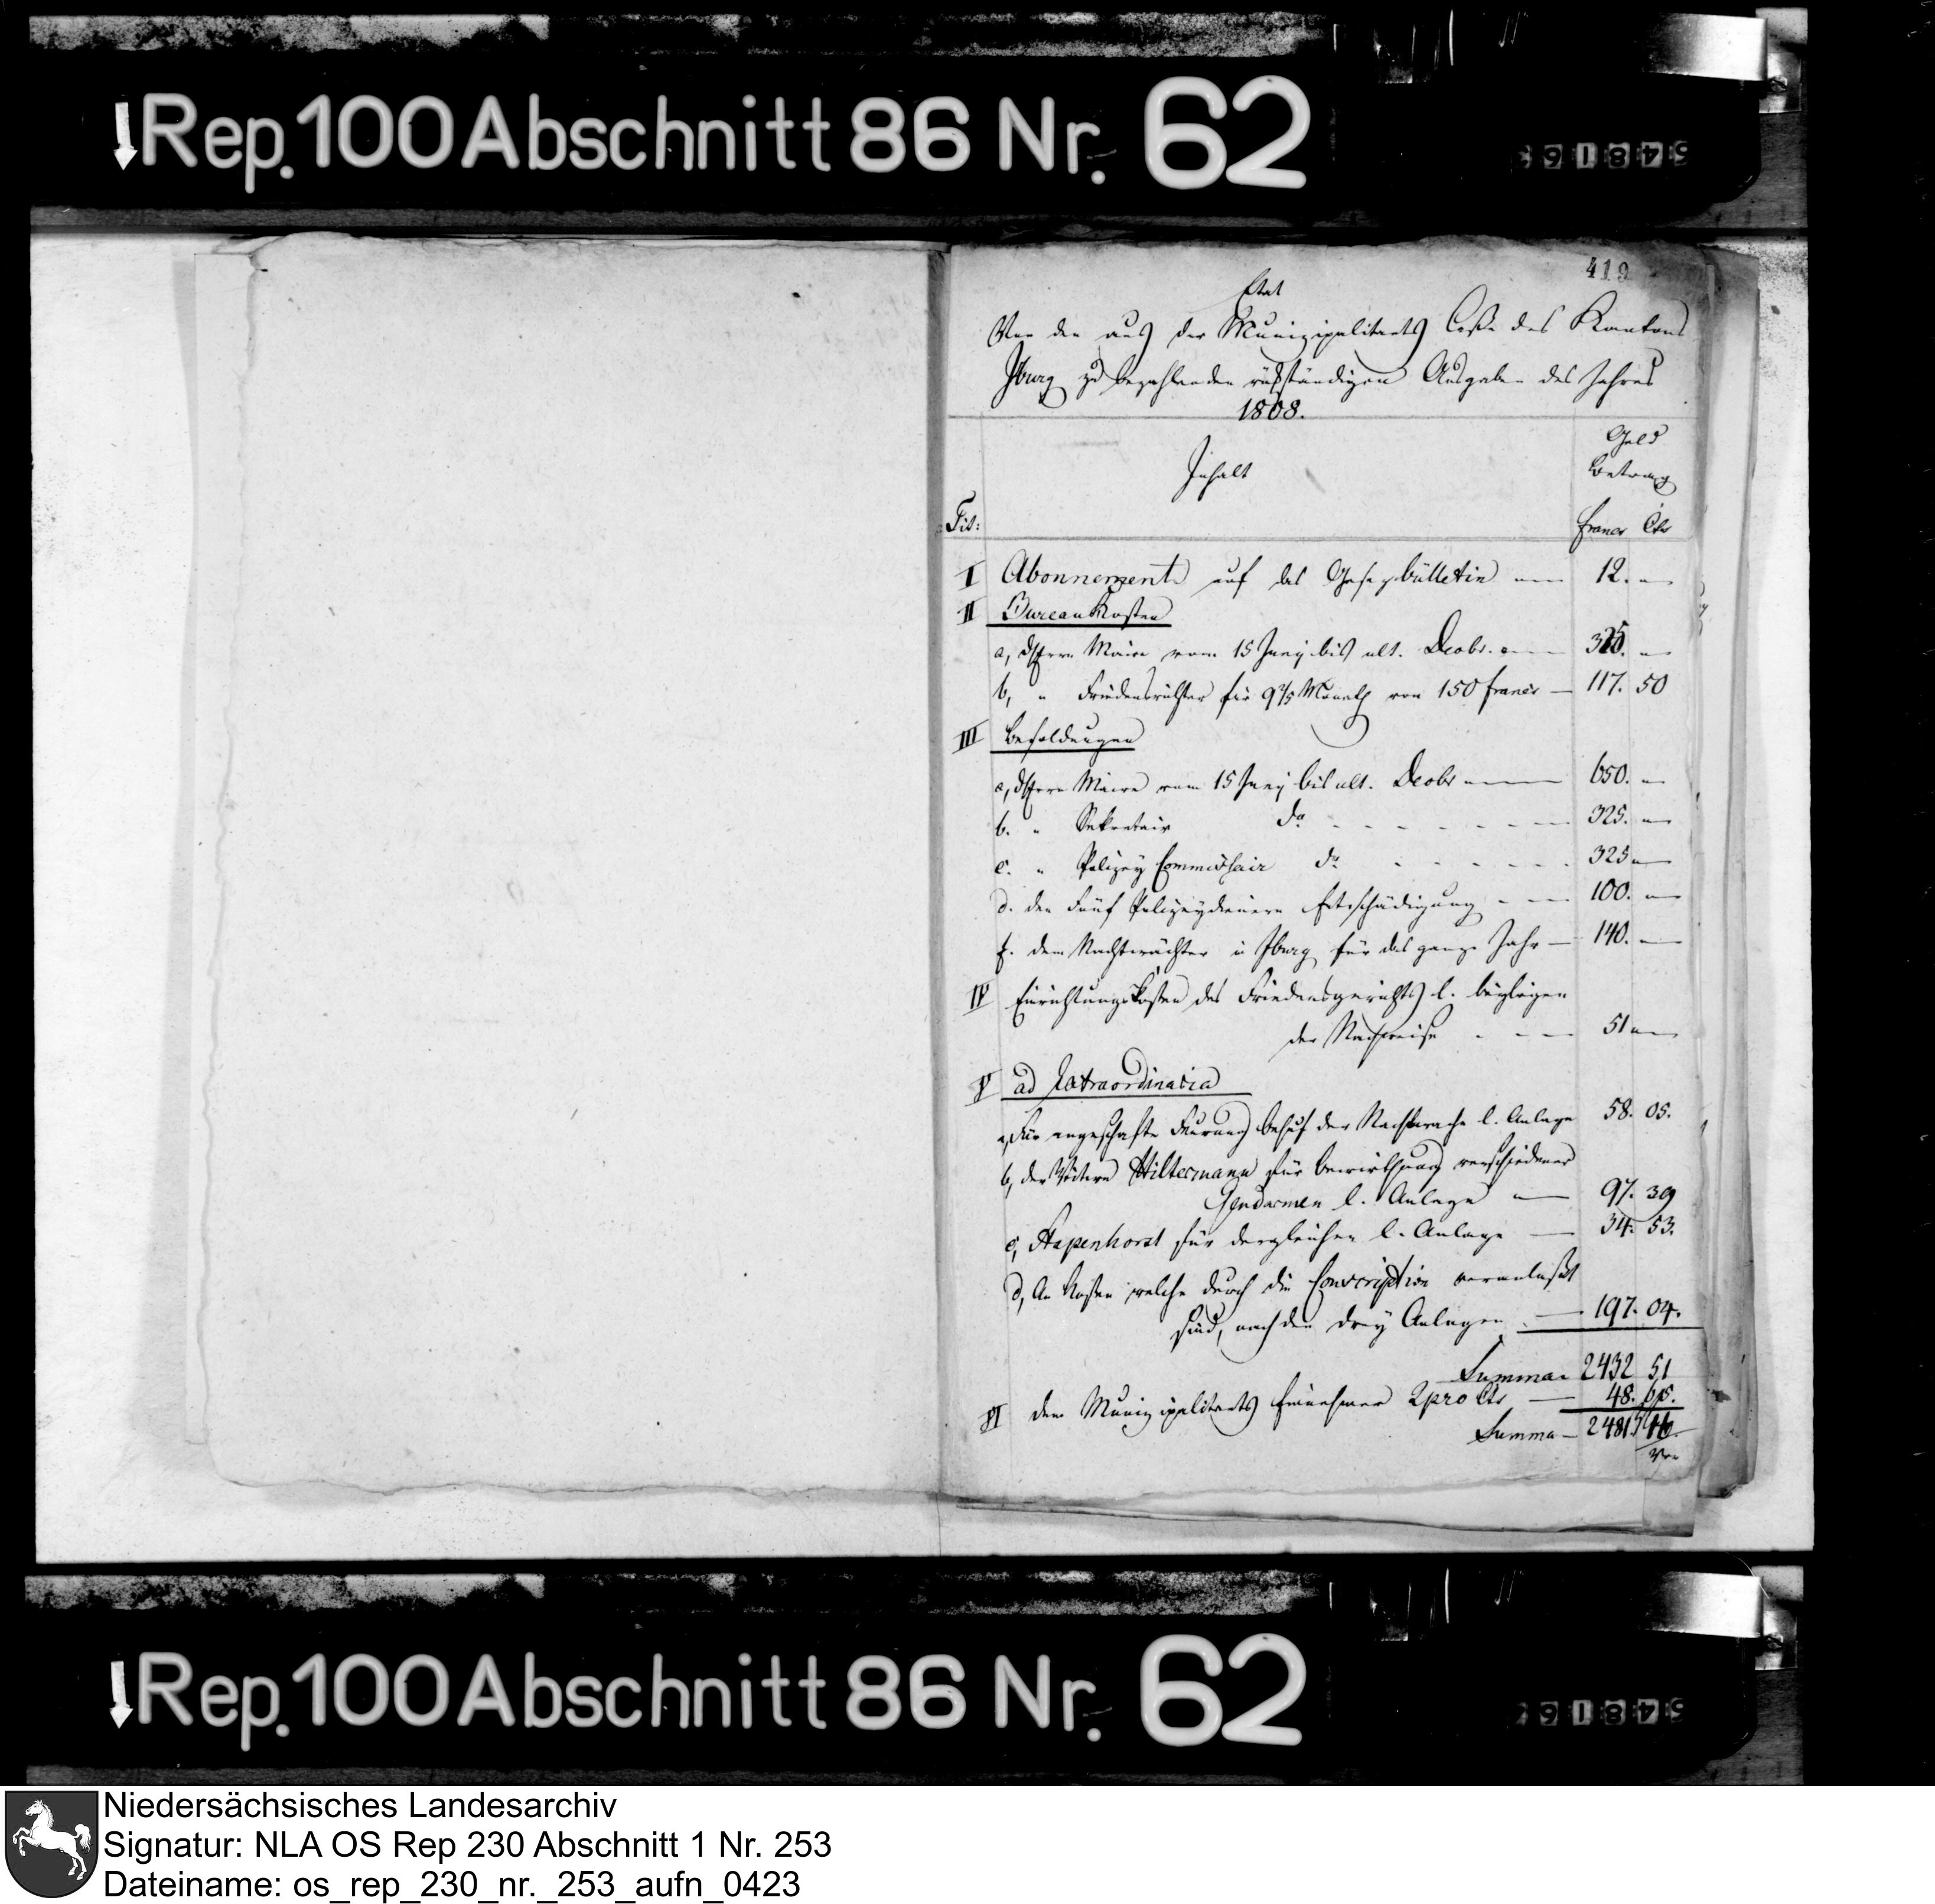 Rep. 100 Abschnitt 86 Nr. 62
419
Etat
Von den aus der Munizipalitaets Casse des Kantons
Iburg zu bezahlenden rückständigen Ausgaben des Jahres
1808.
Geld
Betrag
Inhalt
Tit: francs Cts
I Abonnement auf das Gesezbülletin 12. —
II Bureau Kosten
a, d Herrn Maire vom 15 Juny bis ult. Decbr. 325. —
b, " Friedensrichter für 9 2/5 Monath von 150 francs — 117. 50
III Besoldungen
a, d Herrn Maire vom 15 Juny bis ult. Decbr — 650. —
b. " Sekretair do - - - 325. —
c. " Polizey Commissair do - - - 325 —
d. den Fünf Polizeydienern Entschädigung - — 100. —
f. dem Nachtwächter in Iburg für das ganze Jahr — 140. —
IV Einrichtungskosten des Friedensgerichts l. beyligen
der Nachweise - - — 51 —
V ad Extraordinaria
a, Für angeschafte Feurung behuf der Nachtwache l. Anlage 58. 05.
b, der Wittwe Hiltermann für bewirthung verschiedener
Gendarmen l. Anlage — 97. 39
c, Stapenhorst für dergleichen l. Anlage — 34. 53.
d, An Kosten welche durch die Conscription veranlaßt
sind, nach den drey Anlagen — 197. 04.
Summa 2432 51
VI dem Munizipalitaets Einnehmer 2 pro Cts — 48. 65.
Summa — 2481 16
Rep. 100 Abschnitt 86 Nr. 62
Niedersächsisches Landesarchiv
Signatur: NLA OS Rep 230 Abschnitt 1 Nr. 253
Dateiname: os_rep_230_nr._253_aufn_0423